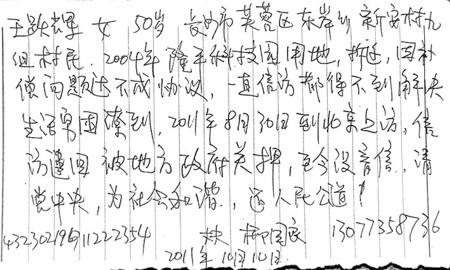 王 女 50岁 长沙市芙蓉区东岸乡新安村九
组村民。2004年隆平科技园用地,拆迁,因补
偿问题达不成协议,一直信访都得不到解决
生活穷困潦到,2011年8月30日到北京上访,信
访遭回被地方政府关押,至今没音信,请
党中央,为社会和谐,还人民公道!
432302196112223 54 柳国 13077358736
2011年10月10日